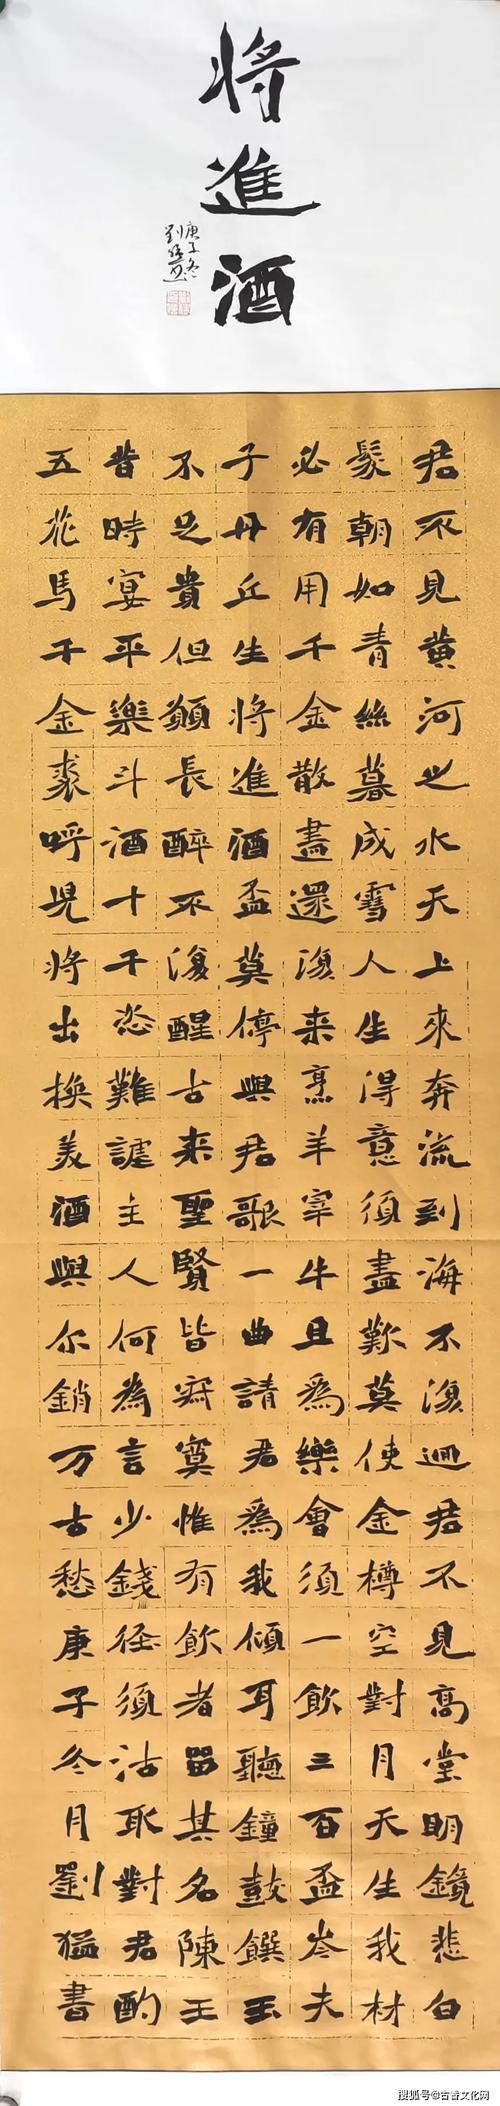 将進酒
庚子冬
君不見黄河之水天上來奔流到海不復迴君不見高堂明鏡悲白
髮朝如青絲暮成雪人生得意須盡歎莫使金樽空對月天生我材
必有用千金散盡還復来烹羊宰牛且為樂會須一飲三百盃岑夫
子丹丘生将進酒盃莫停與君歌一曲請君為我傾耳聽鐘鼓饌玉
不足貴但願長醉不復醒古来聖賢皆寂寞惟有飲者留其名陳王
昔時宴平樂斗酒十千恣難謔主人何為言少錢径須沽取對君酌
五花馬千金裘呼児将出換美酒與尔銷万古愁庚子冬月劉猛書
搜狐号@古香文化网